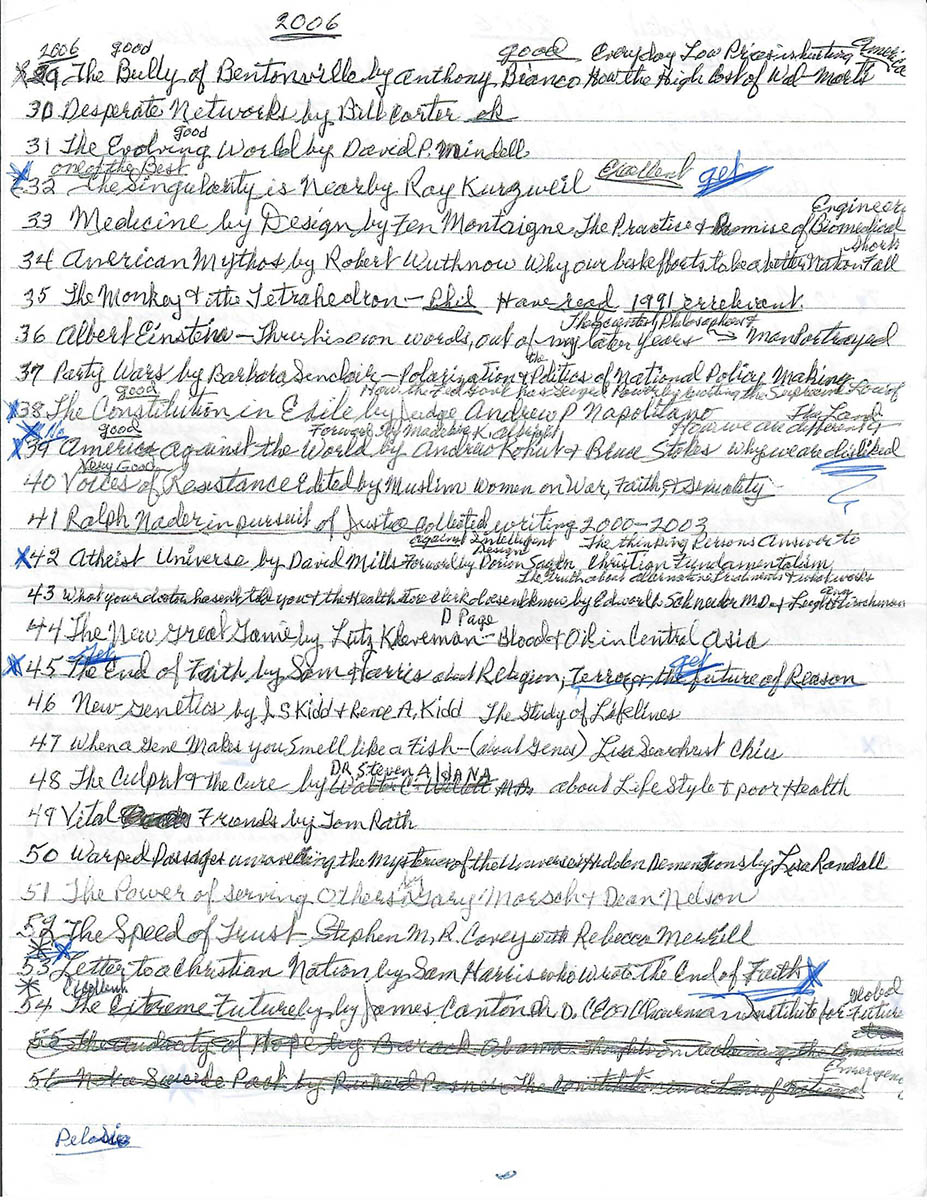 2006
2006 good good Everyday Low Prices is hurting America
29 The Bully of Bentonville by Anthony Bianco How the High Cost of Wal-Mart's
30 Desperate Networks by Bill Carter ok
good
31 The Evolving World by David P. Mindell
one of the Best
32 The Singularity is Near by Ray Kurzweil Excellent get
Engineer
33 Medicine by Design by Fen Montaigne The Practice & Promise of Biomedical
short
34 American Mythos by Robert Wuthnow Why our best efforts to be a better Nation Fall
35 The Monkey & the Tetrahedron - Phil Have read 1991 irrelevant.
The Scientist, Philosopher &
36 Albert Einstein - Thru his own words, out of my later years → Man portrayed
the
37 Party Wars by Barbara Sinclair - Polarization & Politics of National Policy Making
good How the Fed Gov. has seized Power by the Supreme Law of
38 The Constitution in Exile by Judge Andrew P Napolitano The Land
No good Forward by Madeline K. Albright How we are different &
39 America against the World by Andrew Kohut & Bruce Stokes Why we are disliked
Very Good
40 Voices of Resistance Edited by Muslim Women on War, Faith, & Sexuality
41 Ralph Nader in pursuit of Justice Collected writing 2000-2003
against Intelligent Design The thinking Persons Answer to
42 Atheist Universe by David Mills Forword by Dorion Sagan Christian Fundamentalism
The Truth about alternative treatments & what works
43 What your doctor hasent told you & the Health store clerk doesent know by Edward Schneider M.D. & Leigh Ann Hirschman
D Page
44 The New Great Game by Lutz Kleveman - Blood & Oil in Central Asia
get get
45 The End of Faith by Sam Harris about Religion, Terror & the future of Reason
46 New Genetics by J S Kidd & Renee A. Kidd The Study of Lifelines
47 When a Gene Makes you Smell like a Fish - (about Genes) Lisa Seachrist Chiu
DR Steven Aldana
48 The Culprit & the Cure by M.D. about Life Style & poor Health
49 Vital Friends by Tom Rath
50 Warped Passages unraveling the Mysteries of the Universes Hidden Dementions by Lisa Randall
by
51 The Power of Serving Others Gary Morsch & Dean Nelson
52 The Speed of Trust - Stephen M. R. Covey with Rebecca Merrill
53 Letter to a Christian Nation by Sam Harris who wrote The End of Faith
Excellent global
54 The Extreme Future by James Canton Ph D. CEO Chairman Institute for Future
55 The Audacity of Hope by Barack Obama Thoughts on reclaiming the
Emergency
56 Not a Suicide Pact by Richard Posner The Constitution in a time of National